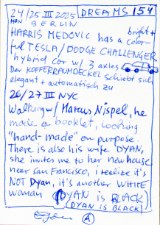 24/25 III 2025 DREAMS 154
BERLIN
HARRIS MEDOVIC has a bright +
color-
ful TESLA/DODGE CHALLENGER
hybrid car w/ 3 axles
Der KOFFERRAUMDECKEL schließt sich
elegant + automatisch zu
26/27 III NYC
Waltraut / Marcus Nispel, he
made a booklet, looking
"hand-made" on purpose
There is also his wife DYAN,
she invites me to her new house
near San Francisco, I realize it's
NOT Dyan, it's another WHITE
woman DYAN IS BLACK
DYAN IS BLACK!
A